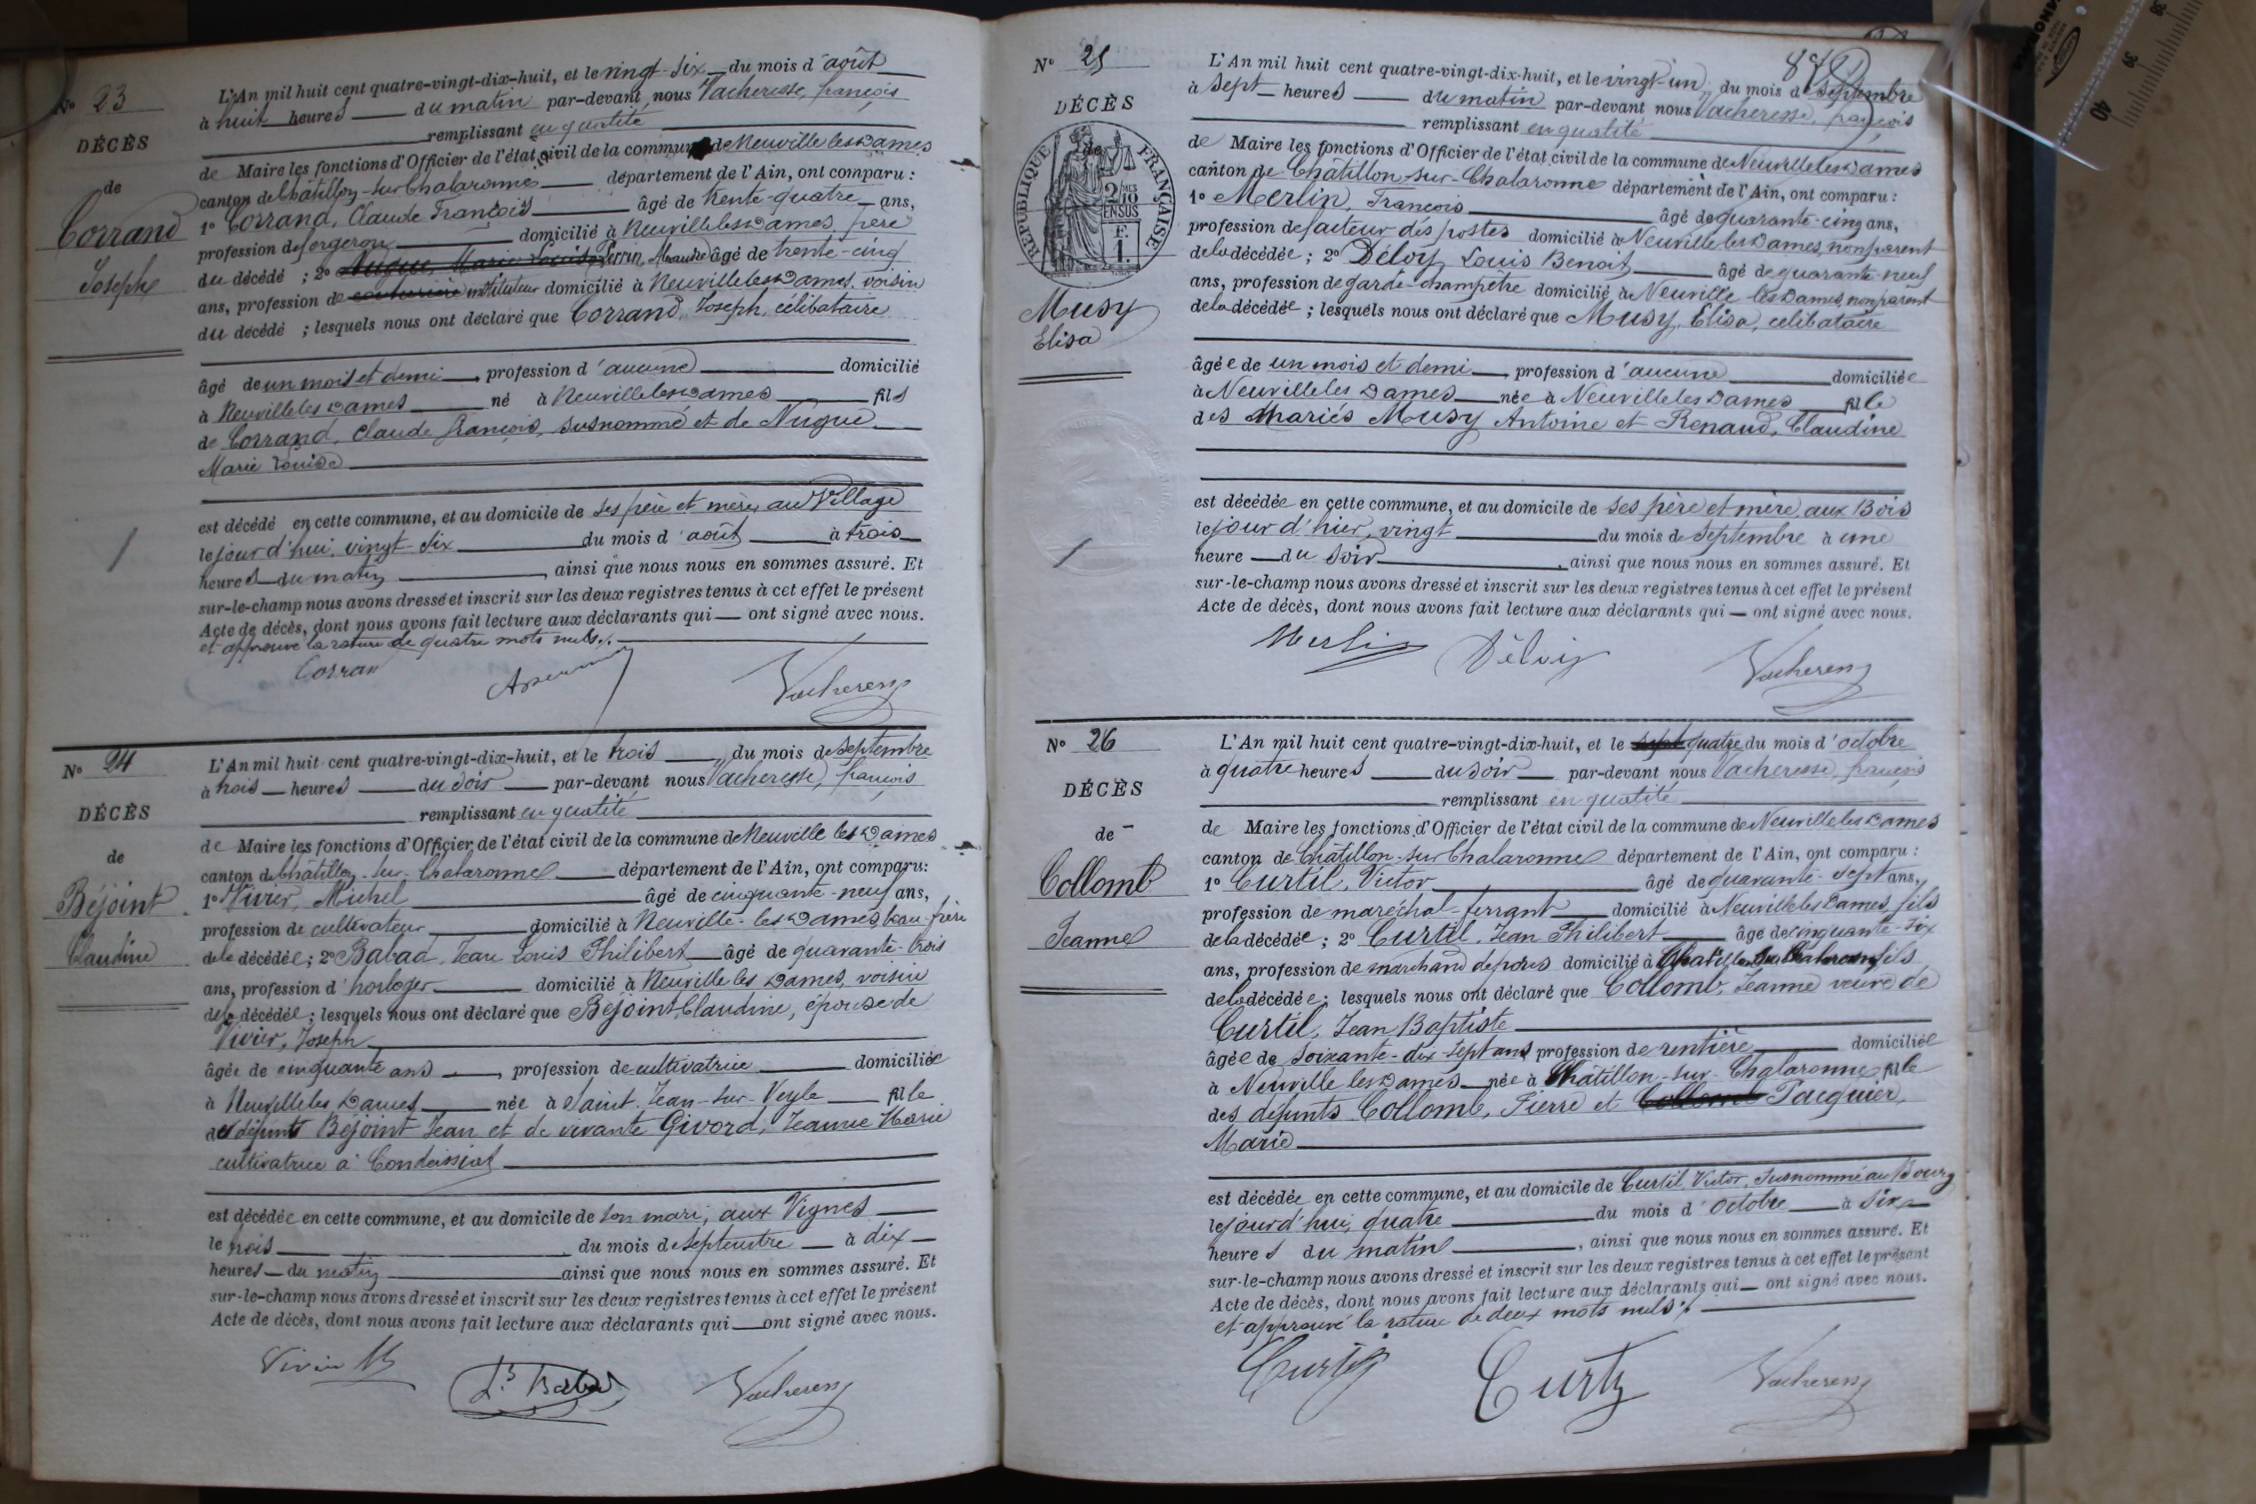 N° 23
DÉCÈS
de
Corrand
Joseph
L'An mil huit cent quatre-vingt-dix-huit, et le vingt-six du mois d'août
à huit heures du matin par-devant nous Vacheresse, françois
remplissant en qualité
de Maire les fonctions d'Officier de l'état civil de la commune de Neuville les Dames
canton de Châtillon-sur-Chalaronne département de l'Ain, ont comparu :
1° Corrand, Claude François âgé de trente-quatre ans,
profession de forgeron domicilié à Neuville les Dames, père
du décédé ; 2° Nugue, Marie Louise Perrin, âgé de trente-cinq
ans, profession de couturière instituteur domicilié à Neuville les Dames, voisin
du décédé ; lesquels nous ont déclaré que Corrand, Joseph, célibataire
âgé de un mois et demi, profession d'aucune domicilié
à Neuville les Dames né à Neuville les Dames fils
de Corrand, Claude François, susnommé et de Nugue
Marie Louise
est décédé en cette commune, et au domicile de ses père et mère, au Village
le jour d'hui, vingt-six du mois d'août à trois
heures du matin, ainsi que nous nous en sommes assuré. Et
sur-le-champ nous avons dressé et inscrit sur les deux registres tenus à cet effet le présent
Acte de décès, dont nous avons fait lecture aux déclarants qui ont signé avec nous.
et approuvé la rature de quatre mots nuls.
Corran
Vacheress
N° 24
DÉCÈS
de
Béjoint
Claudine
L'An mil huit cent quatre-vingt-dix-huit, et le trois du mois de septembre
à trois heures du soir par-devant nous Vacheresse, françois
remplissant en qualité
de Maire les fonctions d'Officier de l'état civil de la commune de Neuville les Dames
canton de Châtillon-sur-Chalaronne département de l'Ain, ont comparu :
1° Vivier, Michel âgé de cinquante-neuf ans,
profession de cultivateur domicilié à Neuville-les-Dames, beau-frère
de la décédée ; 2° Babad, Jean Louis Philibert âgé de quarante-trois
ans, profession d'horloger domicilié à Neuville les Dames, voisin
de la décédée ; lesquels nous ont déclaré que Béjoint, Claudine, épouse de
Vivier, Joseph
âgée de cinquante ans, profession de cultivatrice domiciliée
à Neuville les Dames née à Saint-Jean-sur-Veyle fille
des défunts Béjoint Jean et de vivante Givord, Jeanne Marie
cultivatrice à Condeissiat
est décédée en cette commune, et au domicile de son mari, aux Vignes
le trois du mois de septembre à dix
heures du matin ainsi que nous nous en sommes assuré. Et
sur-le-champ nous avons dressé et inscrit sur les deux registres tenus à cet effet le présent
Acte de décès, dont nous avons fait lecture aux déclarants qui ont signé avec nous.
Vivier M
Babad
Vacheress
N° 25
DÉCÈS
de
RÉPUBLIQUE FRANÇAISE
2/10 MES
EN SUS
F.
1.
Musy
Elisa
87
L'An mil huit cent quatre-vingt-dix-huit, et le vingt-un du mois de septembre
à sept heures du matin par-devant nous Vacheresse, françois
remplissant en qualité
de Maire les fonctions d'Officier de l'état civil de la commune de Neuville les Dames
canton de Châtillon-sur-Chalaronne département de l'Ain, ont comparu :
1° Merlin, François âgé de quarante-cinq ans,
profession de facteur des postes domicilié à Neuville les Dames, non parent
de la décédée ; 2° Déloy, Louis Benoit âgé de quarante-neuf
ans, profession de garde-champêtre domicilié à Neuville les Dames, non parent
de la décédée ; lesquels nous ont déclaré que Musy, Elisa, célibataire
âgée de un mois et demi, profession d'aucune domiciliée
à Neuville les Dames née à Neuville les Dames fille
des mariés Musy Antoine et Renaud, Claudine
est décédée en cette commune, et au domicile de ses père et mère, aux Bois
le jour d'hier, vingt du mois de septembre à une
heure du soir, ainsi que nous nous en sommes assuré. Et
sur-le-champ nous avons dressé et inscrit sur les deux registres tenus à cet effet le présent
Acte de décès, dont nous avons fait lecture aux déclarants qui ont signé avec nous.
Merlin
Déloiy
Vacheress
N° 26
DÉCÈS
de
Collomb
Jeanne
L'An mil huit cent quatre-vingt-dix-huit, et le sept quatre du mois d'octobre
à quatre heures du soir par-devant nous Vacheresse, françois
remplissant en qualité
de Maire les fonctions d'Officier de l'état civil de la commune de Neuville les Dames
canton de Châtillon-sur-Chalaronne département de l'Ain, ont comparu :
1° Curtil, Victor âgé de quarante-sept ans,
profession de maréchal-ferrant domicilié à Neuville les Dames, fils
de la décédée ; 2° Curtil, Jean Philibert âgé de cinquante-six
ans, profession de marchand de porcs domicilié à Châtillon sur Chalaronne, fils
de la décédée ; lesquels nous ont déclaré que Collomb, Jeanne veuve de
Curtil, Jean Baptiste
âgée de soixante-dix-sept ans profession de rentière domiciliée
à Neuville les Dames née à Châtillon-sur-Chalaronne fille
des défunts Collomb, Pierre et Collomb Pacquier,
Marie
est décédée en cette commune, et au domicile de Curtil, Victor, susnommé au Bourg
le jour d'hui, quatre du mois d'octobre à six
heures du matin, ainsi que nous nous en sommes assuré. Et
sur-le-champ nous avons dressé et inscrit sur les deux registres tenus à cet effet le présent
Acte de décès, dont nous avons fait lecture aux déclarants qui ont signé avec nous.
et approuvé la rature de deux mots nuls.
Curtil
Curtil
Vacheress
38
39
40